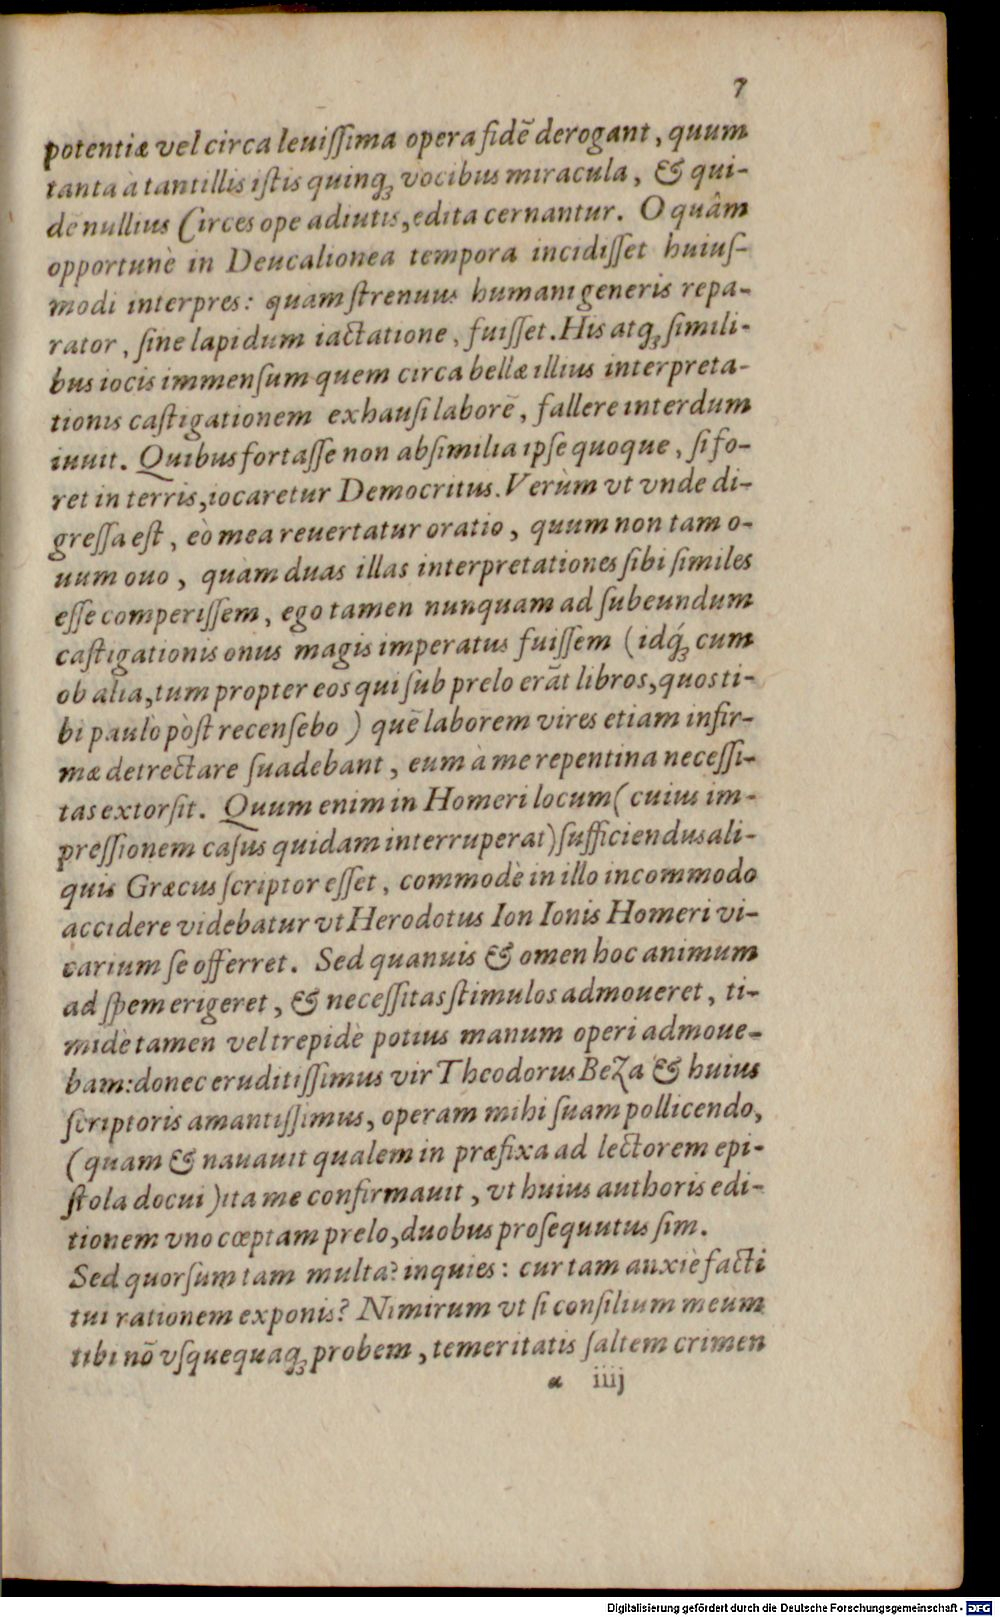 7
potentiæ vel circa leuiſſima opera fidẽ derogant, quum
tanta à tantillis iſtis quinqꝫ vocibus miracula, & qui-
dẽ nullius Circes ope adiutis, edita cernantur. O quâm
opportunè in Deucalionea tempora incidiſſet huiuſ-
modi interpres: quam ſtrenuus humani generis repa-
rator, ſine lapidum iactatione, fuiſſet. His atqꝫ ſimili-
bus iocis immenſum quem circa bellæ illius interpreta-
tionis caſtigationem exhauſi laborẽ, fallere interdum
iuuit. Quibus fortaſſe non abſimilia ipſe quoque, ſi fo-
ret in terris, iocaretur Democritus. Verùm vt vnde di-
greſſa eſt, eò mea reuertatur oratio, quum non tam o-
uum ouo, quam duas illas interpretationes ſibi ſimiles
eſſe comperiſſem, ego tamen nunquam ad ſubeundum
caſtigationis onus magis imperatus fuiſſem (idq́ꝫ cum
ob alia, tum propter eos qui ſub prelo erãt libros, quos ti-
bi paulo pòſt recenſebo) quẽ laborem vires etiam infir-
mæ detrectare ſuadebant, eum à me repentina neceſſi-
tas extorſit. Quum enim in Homeri locum (cuius im-
preſſionem caſus quidam interruperat) ſufficiendus ali-
quis Græcus ſcriptor eſſet, commodè in illo incommodo
accidere videbatur vt Herodotus Ion Ionis Homeri vi-
carium ſe offerret. Sed quanuis & omen hoc animum
ad ſpem erigeret, & neceſſitas ſtimulos admoueret, ti-
midè tamen vel trepidè potius manum operi admoue-
bam: donec eruditiſſimus vir Theodorus Beza & huius
ſcriptoris amantiſſimus, operam mihi ſuam pollicendo,
(quam & nauauit qualem in præfixa ad lectorem epi-
ſtola docui) ita me confirmauit, vt huius authoris edi-
tionem vno cœptam prelo, duobus proſequutus ſim.
Sed quorſum tam multa? inquies: cur tam anxiè facti
tui rationem exponis? Nimirum vt ſi conſilium meum
tibi nõ vſquequaqꝫ probem, temeritatis ſaltem crimen
a iiij
Digitalisierung gefördert durch die Deutsche Forschungsgemeinschaft - DFG